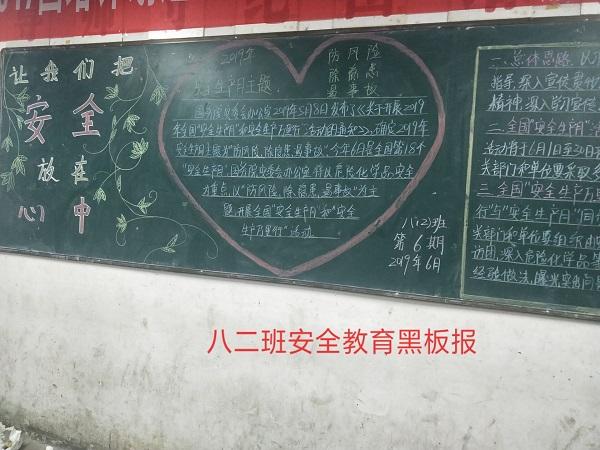 让我们把
安全
放在
心中
2019年
安全生产月主题
防风险
除隐患
遏事故
国务院安委会办公室2019年5月8日发布了《关于开展2019
年全国"安全生产月"和"安全生产万里行"活动的通知》,确定2019年
安全生产月主题为"防风险、除隐患、遏事故",今年6月是全国第18个
"安全生产月",国务院安委会办公室将以危险化学品安全
为重点,以"防风险、除隐患、遏事故"为主
题,开展全国"安全生产月"和"安全
生产万里行"活动
八(2)班
第6期
2019年6月
一、总体思路,以习
指导,深入宣传贯彻
精神,深入学习宣传
二、全国"安全生产月"活
动将于6月1日至30日
关部门和单位要采取多
三、全国"安全生产万里
行"与"安全生产月"同
关部门和单位要组织由
访团,深入危险化学品
经验做法,曝光突出问
八二班安全教育黑板报